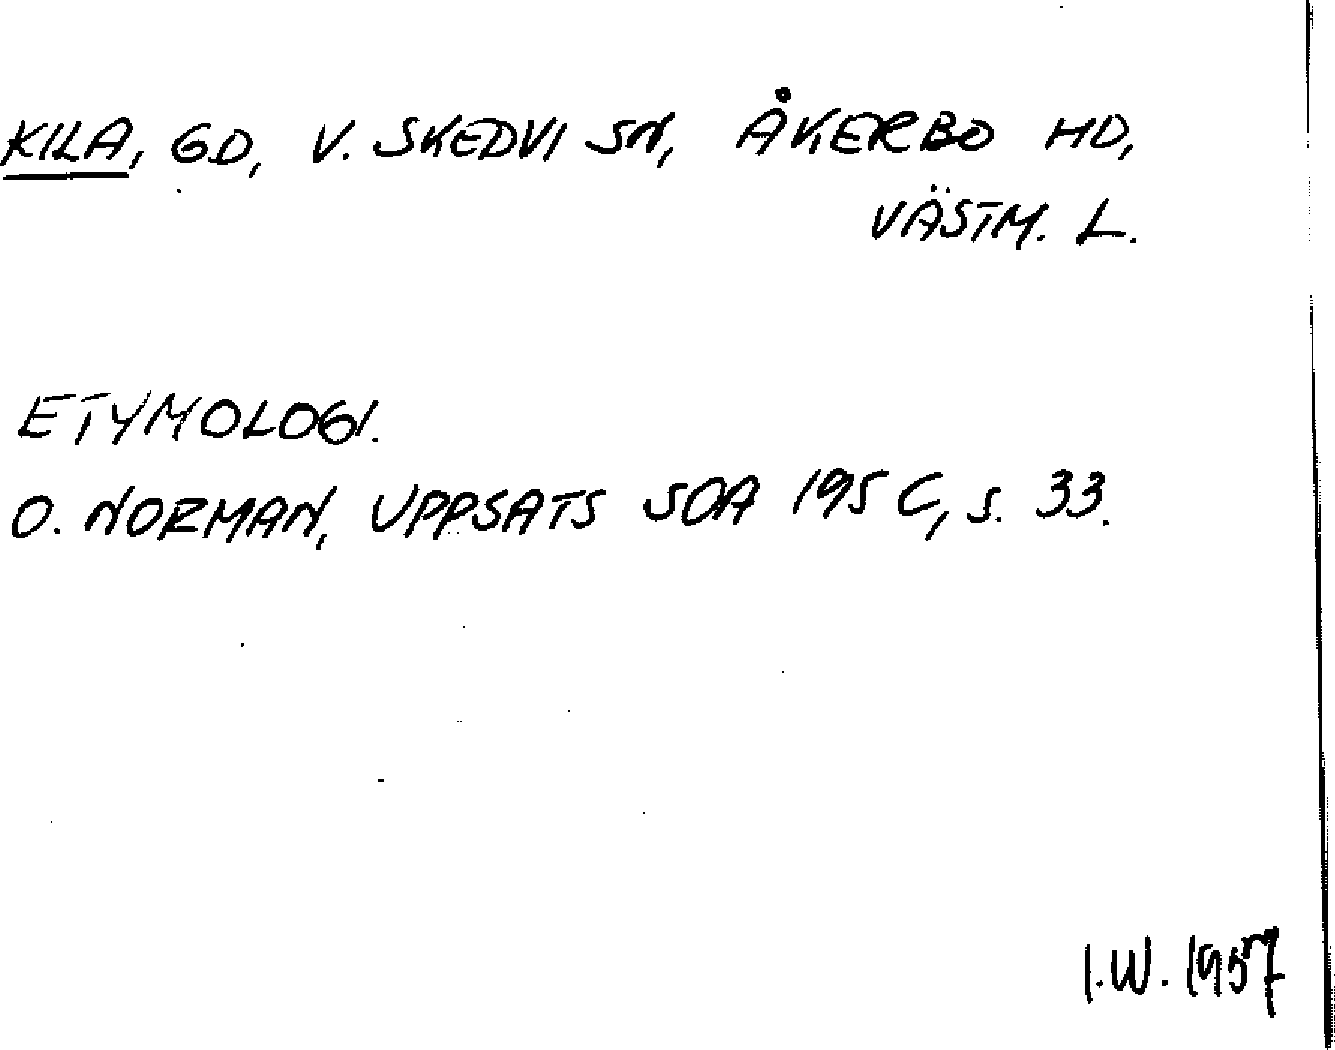 KILA, GD, V. SKEDVI SN, ÅKERBO HD,
VÄSTM. L.
ETYMOLOGI.
O. NORMAN, UPPSATS SOA 195 C, S. 33.
I.W. 1957